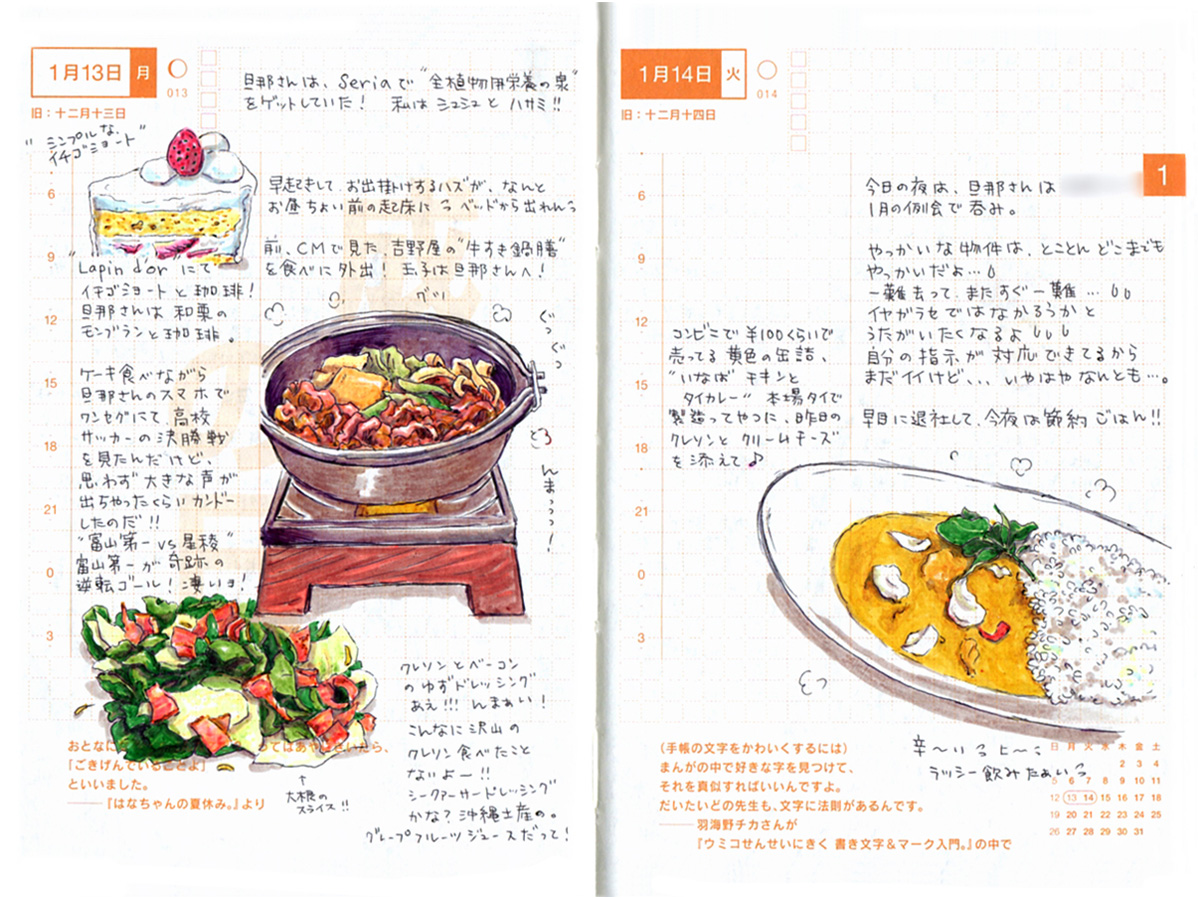 1月13日 月
013
旧：十二月十三日
旦那さんは、Seriaで"全植物用栄養の泉"
をゲットしていた! 私は シュシュと ハサミ!!
"シンプルな、
イチゴショート"
早起きして、お出掛けするハズが、なんと
お昼ちょい前の起床に ベッドから出れん
前、CMで見た、吉野屋の"牛すき鍋膳"
を食べに外出! 玉子は旦那さんへ!
"Lapin d'or"にて
イチゴショートと珈琲!
旦那さんは 和栗の
モンブランと珈琲。
グツ
ぐつぐつ
んまっっっ!
ケーキ食べながら
旦那さんのスマホで
ワンセグにて、高校
サッカーの決勝戦
を見たんだけど、
思わず大きな声が
出ちゃったくらいカンドー
したのだ!!
"富山第一 vs 星稜"
富山第一が奇跡の
逆転ゴール! 凄いヨ!
6
9
12
15
18
21
0
3
クレソンとベーコン
のゆずドレッシング
あえ!!! んまぁい!
こんなに沢山の
クレソン食べたこと
ないよー!!
シークァーサードレッシング
かな? 沖縄土産の。
グレープフルーツジュースだって!
↑
大根の
スライス!!
おとなに
「ごきげんでいることよ」
といいました。
——『はなちゃんの夏休み。』より
1月14日 火
014
旧：十二月十四日
1
今日の夜は、旦那さんは
1月の例会で呑み。
やっかいな物件は、とことんどこまでも
やっかいだよ…
一難去って、またすぐ一難…
イヤガラセではなかろうかと
うたがいたくなるよ
自分の指示が対応できてるから
まだイイけど、、、いやはやなんとも…。
早目に退社して、今夜は節約ごはん!!
コンビニで¥100くらいで
売ってる黄色の缶詰、
"いなば チキンと
タイカレー" 本場タイで
製造ってやつに、昨日の
クレソンと クリームチーズ
を添えて♪
6
9
12
15
18
21
0
3
辛〜いよ〜
ラッシー飲みたぁい
(手帳の文字をかわいくするには)
まんがの中で好きな字を見つけて、
それを真似すればいいんですよ。
だいたいどの先生も、文字に法則があるんです。
——羽海野チカさんが
『ウミコせんせいにきく 書き文字＆マーク入門。』の中で
日 月 火 水 木 金 土
2 3 4
5 6 7 8 9 10 11
12 13 14 15 16 17 18
19 20 21 22 23 24 25
26 27 28 29 30 31